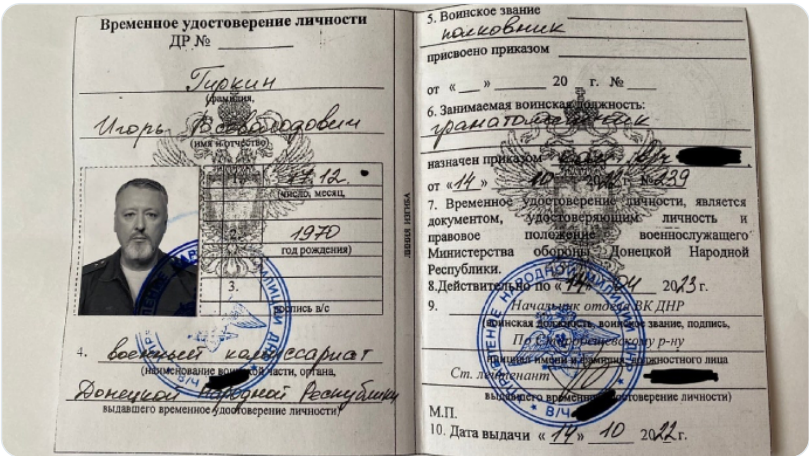 Временное удостоверение личности
ДР №
Гиркин
(фамилия,
Игорь Всеволодович
(имя и отчество)
1. 17.12.
(число, месяц,
2. 1970
год рождения)
3.
роспись в/с
4. военный комиссариат
(наименование воинской части, органа,
Донецкой Народной Республики
выдавшего временное удостоверение личности)
ЛИНИЯ ИЗГИБА
5. Воинское звание
полковник
присвоено приказом
от « » 20 г. №
6. Занимаемая воинская должность:
гранатометчик
назначен приказом в/ч
от «14» 10 2022 г. №239
7. Временное удостоверение личности, является
документом, удостоверяющим личность и
правовое положение военнослужащего
Министерства обороны Донецкой Народной
Республики.
8.Действительно по «14» 04 2023г.
9. Начальник отдела ВК ДНР
(воинская должность, воинское звание, подпись,
По Старобешевскому р-ну
инициал имени и фамилия, должностного лица
Ст. лейтенант
выдавшего временное удостоверение личности)
М.П.
10. Дата выдачи «14» 10 2022г.
УПРАВЛЕНИЕ НАРОДНОЙ МИЛИЦИИ ДНР
В/Ч
УПРАВЛЕНИЕ НАРОДНОЙ МИЛИЦИИ ДНР
В/Ч